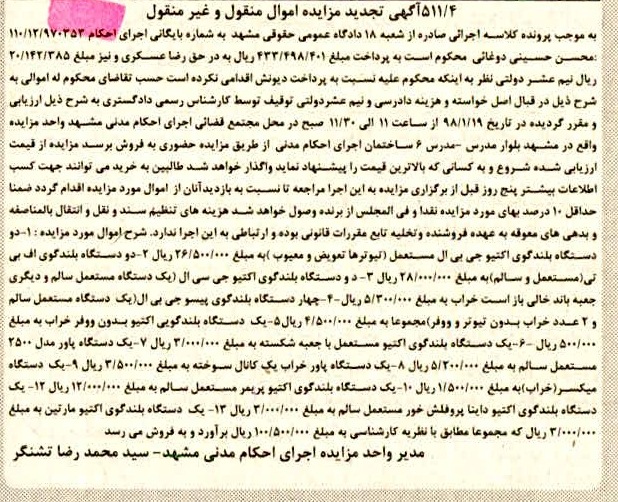 ۵۱۱/۴آگهی تجدید مزایده اموال منقول و غیر منقول
به موجب پرونده کلاسه اجرائی صادره از شعبه ۱۸ دادگاه عمومی حقوقی مشهد به شماره بایگانی اجرای احکام ۱۱۰/۱۲/۹۷۰۳۵۳
:محسن حسینی دوغائی محکوم است به پرداخت مبلغ ۴۳۳/۴۹۸/۴۰۱ ریال به در حق رضا عسکری و نیز مبلغ ۲۰/۱۴۲/۳۸۵
ریال نیم عشر دولتی نظر به اینکه محکوم علیه نسبت به پرداخت دیونش اقدامی نکرده است حسب تقاضای محکوم له اموالی به
شرح ذیل در قبال اصل خواسته و هزینه دادرسی و نیم عشردولتی توقیف توسط کارشناس رسمی دادگستری به شرح ذیل ارزیابی
و مقرر گردیده در تاریخ ۹۸/۱/۱۹ از ساعت ۱۱ الی ۱۱/۳۰ صبح در محل مجتمع قضائی اجرای احکام مدنی مشهد واحد مزایده
واقع در مشهد بلوار مدرس -مدرس ۶ ساختمان اجرای احکام مدنی از طریق مزایده حضوری به فروش برسد مزایده از قیمت
ارزیابی شده شروع و به کسانی که بالاترین قیمت را پیشنهاد نماید واگذار خواهد شد طالبین به خرید می توانند جهت کسب
اطلاعات بیشتر پنج روز قبل از برگزاری مزایده به این اجرا مراجعه تا نسبت به بازدیدآنان از اموال مورد مزایده اقدام گردد ضمنا
حداقل ۱۰ درصد بهای مورد مزایده نقدا و فی المجلس از برنده وصول خواهد شد هزینه های تنظیم سند و نقل و انتقال بالمناصفه
و بدهی های معوقه به عهده فروشنده وتخلیه تابع مقررات قانونی بوده و ارتباطی به این اجرا ندارد. شرح اموال مورد مزایده : ۱-دو
دستگاه بلندگوی اکتیو جی بی ال مستعمل (تیوترها تعویض و معیوب )به مبلغ ۲۶/۵۰۰/۰۰۰ ریال ۲-دو دستگاه بلندگوی اف بی
تی(مستعمل و سالم)به مبلغ ۲۸/۰۰۰/۰۰۰ ریال ۳- د و دستگاه بلندگوی اکتیو جی سی ال (یک دستگاه مستعمل سالم و دیگری
جعبه باند خالی باز است خراب به مبلغ ۵/۳۰۰/۰۰۰ ریال-۴-چهار دستگاه بلندگوی پیسو جی بی ال(یک دستگاه مستعمل سالم
و ۲ عدد خراب بدون تیوتر و ووفر)مجموعا به مبلغ ۴/۵۰۰/۰۰۰ ریال۵-یک دستگاه بلندگویی اکتیو بدون ووفر خراب به مبلغ
۵۰۰/۰۰۰ ریال -۶-یک دستگاه بلندگوی اکتیو مستعمل با جعبه شکسته به مبلغ ۳/۰۰۰/۰۰۰ ریال ۷-یک دستگاه پاور مدل ۲۵۰۰
مستعمل سالم به مبلغ ۵/۲۰۰/۰۰۰ ریال ۸-یک دستگاه پاور خراب یک کانال سوخته به مبلغ ۳/۵۰۰/۰۰۰ ریال ۹-یک دستگاه
میکسر(خراب)به مبلغ ۱/۵۰۰/۰۰۰ ریال ۱۰-یک دستگاه بلندگوی اکتیو پریمر مستعمل سالم به مبلغ ۱۲/۰۰۰/۰۰۰ ریال ۱۲- یک
دستگاه بلندگوی اکتیو داینا پروفلش خور مستعمل سالم به مبلغ ۳/۰۰۰/۰۰۰ ریال ۱۳- یک دستگاه بلندگوی اکتیو مارتین به مبلغ
۳/۰۰۰/۰۰۰ ریال که مجموعا مطابق با نظریه کارشناسی به مبلغ ۱۰۰/۵۰۰/۰۰۰ ریال برآورد و به فروش می رسد
مدیر واحد مزایده اجرای احکام مدنی مشهد- سید محمد رضا تشنگر